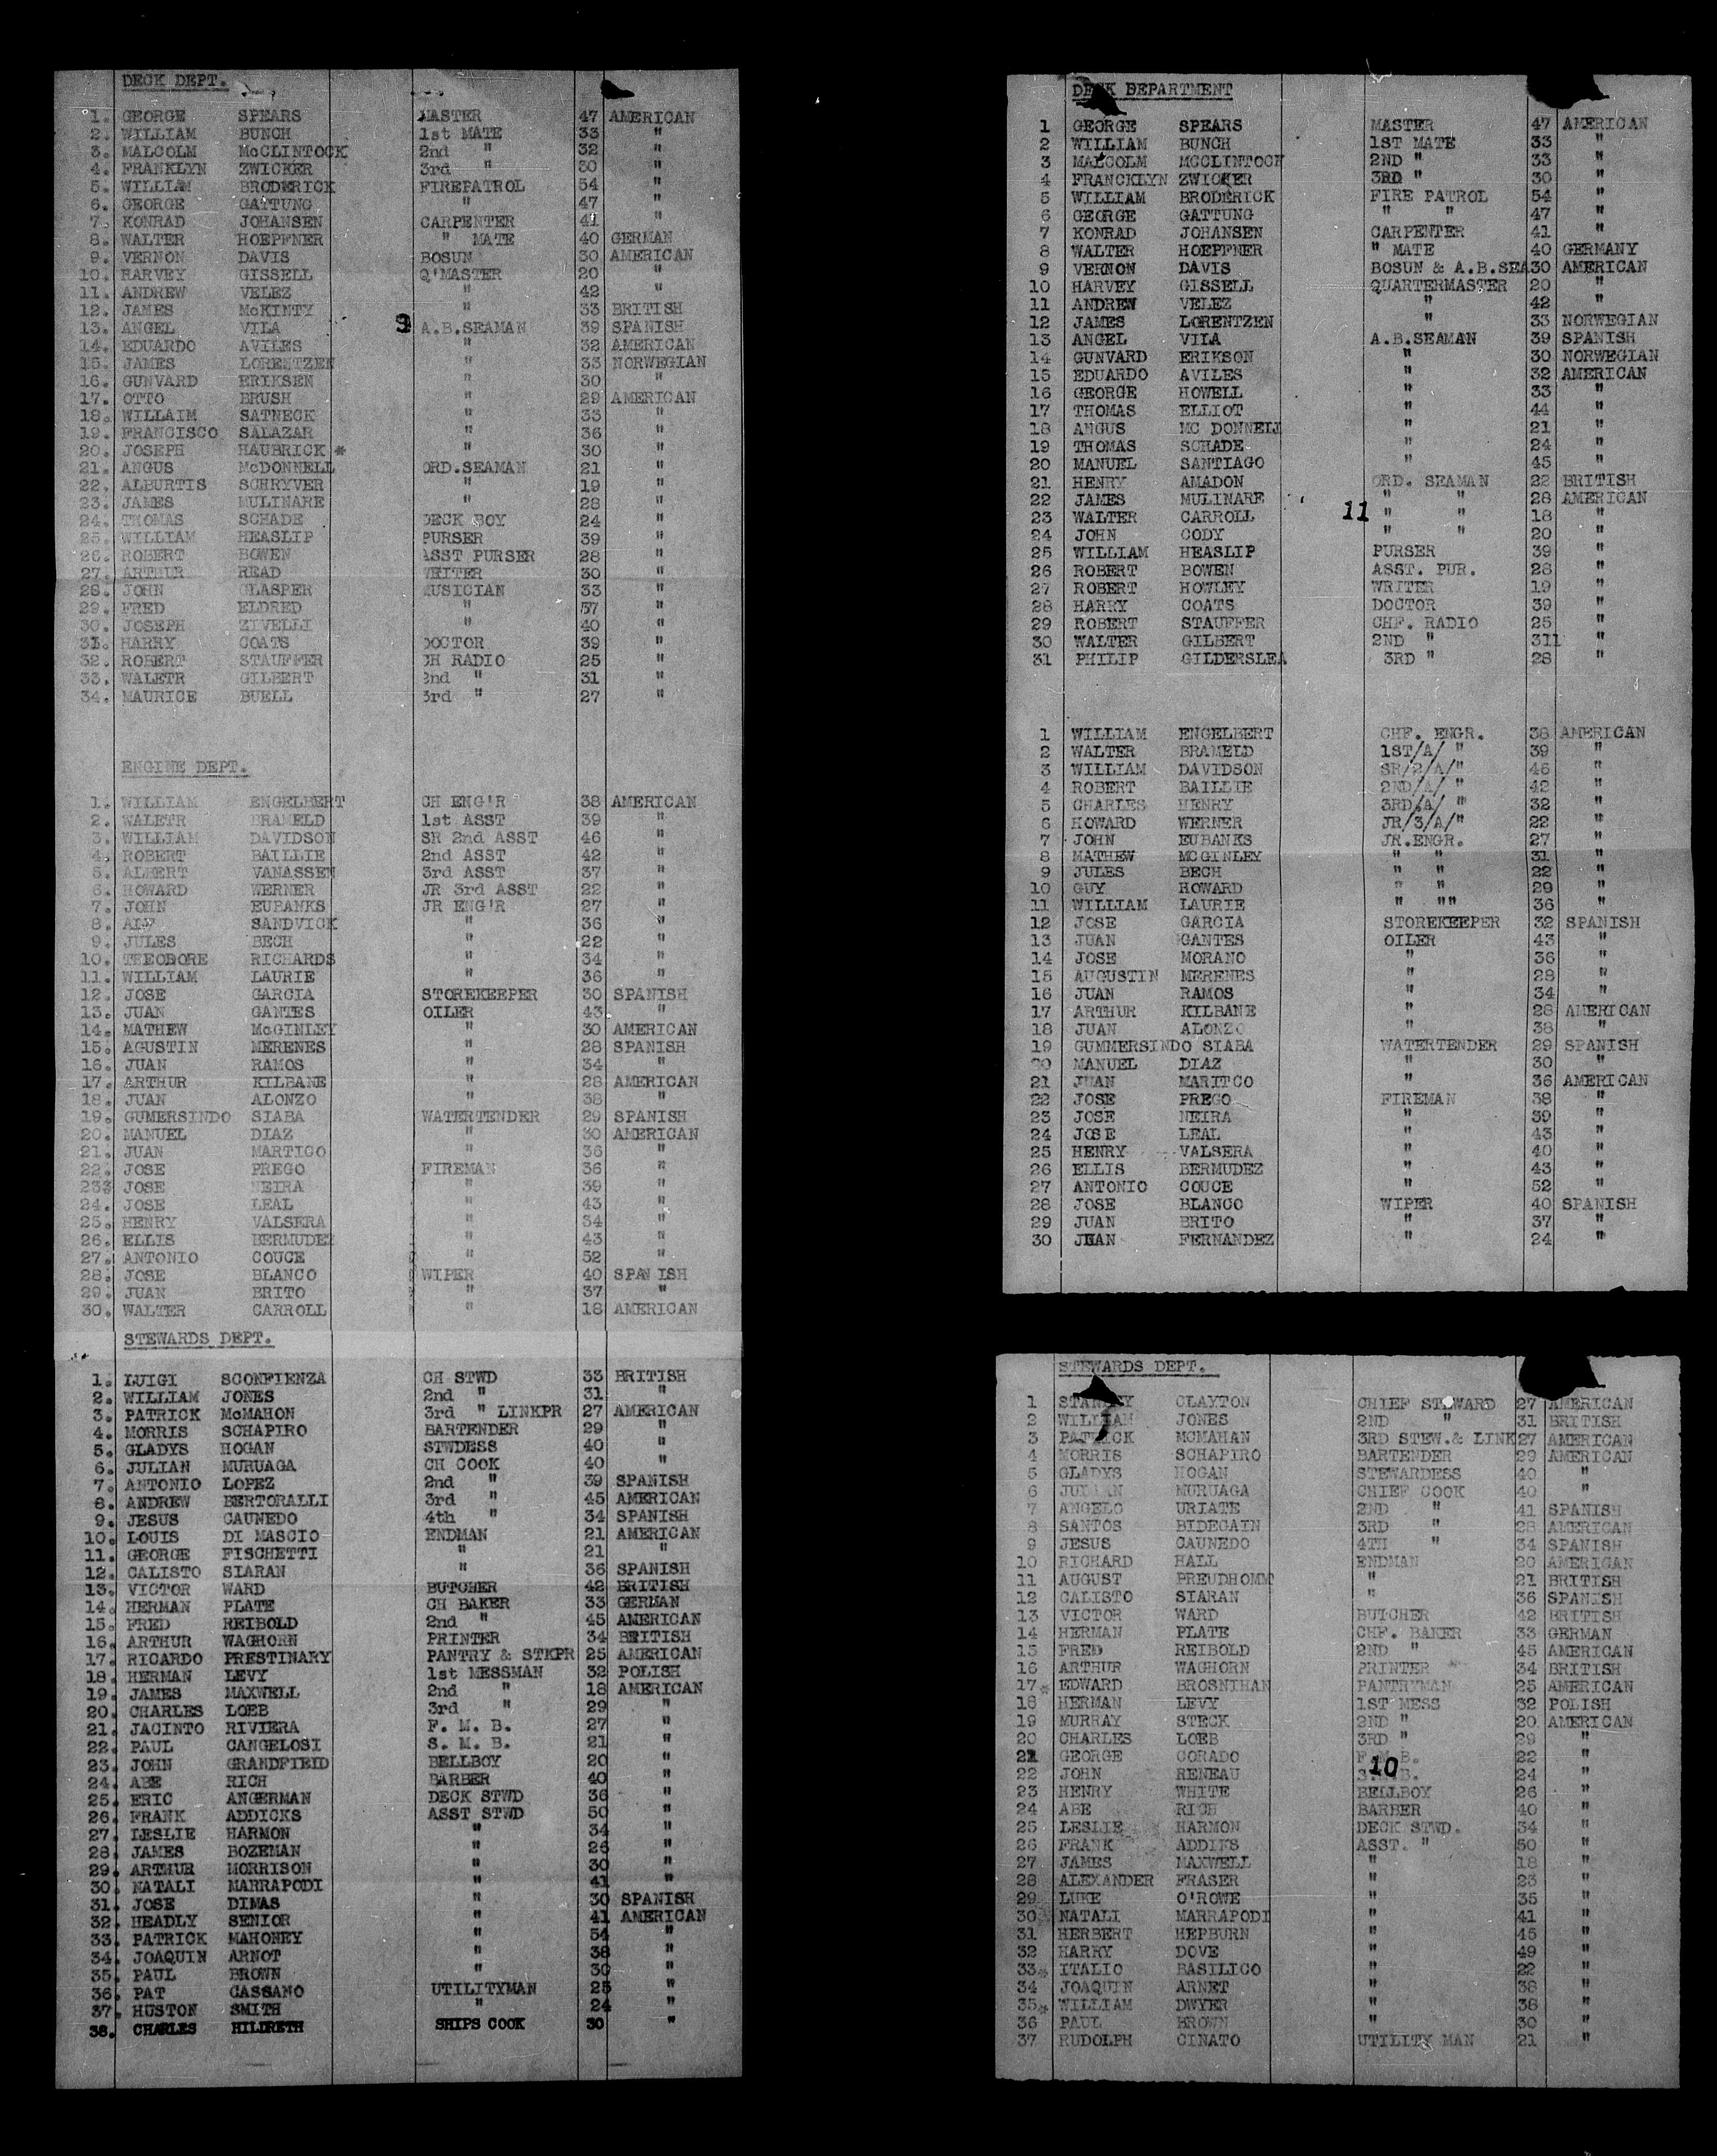 DECK DEPT.
1. GEORGE SPEARS MASTER 47 AMERICAN
2. WILLIAM BUNCH 1st MATE 33 "
3. MALCOLM McCLINTOCK 2nd " 32 "
4. FRANKLYN ZWICKER 3rd " 30 "
5. WILLIAM BRODERICK FIREPATROL 54 "
6. GEORGE GATTUNG " 47 "
7. KONRAD JOHANSEN CARPENTER 41 "
8. WALTER HOEPFNER " MATE 40 GERMAN
9. VERNON DAVIS BOSUN 30 AMERICAN
10. HARVEY GISSELL Q'MASTER 20 "
11. ANDREW VELEZ " 42 "
12. JAMES McKINTY " 33 BRITISH
13. ANGEL VILA 9 A.B.SEAMAN 39 SPANISH
14. EDUARDO AVILES " 32 AMERICAN
15. JAMES LORENTZEN " 33 NORWEGIAN
16. GUNVARD ERIKSEN " 30 "
17. OTTO BRUSH " 29 AMERICAN
18. WILLAIM SATNECK " 33 "
19. FRANCISCO SALAZAR " 36 "
20. JOSEPH HAUBRICK * " 30 "
21. ANGUS McDONNELL ORD.SEAMAN 21 "
22. ALBURTIS SCHRYVER " 19 "
23. JAMES MULINARE " 28 "
24. THOMAS SCHADE DECK BOY 24 "
25. WILLIAM HEASLIP PURSER 39 "
26. ROBERT BOWEN ASST PURSER 28 "
27. ARTHUR READ WRITER 30 "
28. JOHN GLASPER MUSICIAN 33 "
29. FRED ELDRED " 57 "
30. JOSEPH ZIVELLI " 40 "
31. HARRY COATS DOCTOR 39 "
32. ROBERT STAUFFER CH RADIO 25 "
33. WALETR GILBERT 2nd " 31 "
34. MAURICE BUELL 3rd " 27 "
ENGINE DEPT.
1. WILLIAM ENGELBERT CH ENG'R 38 AMERICAN
2. WALETR BRAMELD 1st ASST 39 "
3. WILLIAM DAVIDSON SR 2nd ASST 46 "
4. ROBERT BAILLIE 2nd ASST 42 "
5. ALBERT VANASSEN 3rd ASST 37 "
6. HOWARD WERNER JR 3rd ASST 22 "
7. JOHN EUBANKS JR ENG'R 27 "
8. ALF SANDVICK " 36 "
9. JULES BECH " 22 "
10. THEODORE RICHARDS " 34 "
11. WILLIAM LAURIE " 36 "
12. JOSE GARCIA STOREKEEPER 30 SPANISH
13. JUAN GANTES OILER 43 "
14. MATHEW McGINLEY " 30 AMERICAN
15. AGUSTIN MERENES " 28 SPANISH
16. JUAN RAMOS " 34 "
17. ARTHUR KILBANE " 28 AMERICAN
18. JUAN ALONZO " 38 "
19. GUMERSINDO SIABA WATERTENDER 29 SPANISH
20. MANUEL DIAZ " 30 AMERICAN
21. JUAN MARTICO " 36 "
22. JOSE PREGO FIREMAN 36 "
23. JOSE NEIRA " 39 "
24. JOSE LEAL " 43 "
25. HENRY VALSERA " 34 "
26. ELLIS BERMUDEZ " 43 "
27. ANTONIO COUCE " 52 "
28. JOSE BLANCO WIPER 40 SPANISH
29. JUAN BRITO " 37 "
30. WALTER CARROLL " 18 AMERICAN
STEWARDS DEPT.
1. LUIGI SCONFIENZA CH STWD 33 BRITISH
2. WILLIAM JONES 2nd " 31 "
3. PATRICK McMAHON 3rd " LINKPR 27 AMERICAN
4. MORRIS SCHAPIRO BARTENDER 29 "
5. GLADYS HOGAN STWDESS 40 "
6. JULIAN MURUAGA CH COOK 40 "
7. ANTONIO LOPEZ 2nd " 39 SPANISH
8. ANDREW BERTORALLI 3rd " 45 AMERICAN
9. JESUS CAUNEDO 4th " 34 SPANISH
10. LOUIS DI MASCIO ENDMAN 21 AMERICAN
11. GEORGE FISCHETTI " 21 "
12. CALISTO SIARAN " 36 SPANISH
13. VICTOR WARD BUTCHER 42 BRITISH
14. HERMAN PLATE CH BAKER 33 GERMAN
15. FRED REIBOLD 2nd " 45 AMERICAN
16. ARTHUR WAGHORN PRINTER 34 BRITISH
17. RICARDO PRESTINARY PANTRY & STKPR 25 AMERICAN
18. HERMAN LEVY 1st MESSMAN 32 POLISH
19. JAMES MAXWELL 2nd " 18 AMERICAN
20. CHARLES LOEB 3rd " 29 "
21. JACINTO RIVIERA F. M. B. 27 "
22. PAUL CANGELOSI S. M. B. 21 "
23. JOHN GRANDFIELD BELLBOY 20 "
24. ABE RICH BARBER 40 "
25. ERIC ANGERMAN DECK STWD 36 "
26. FRANK ADDICKS ASST STWD 50 "
27. LESLIE HARMON " 34 "
28. JAMES BOZEMAN " 26 "
29. ARTHUR MORRISON " 30 "
30. NATALI MARRAPODI " 41 "
31. JOSE DIMAS " 30 SPANISH
32. HEADLY SENIOR " 41 AMERICAN
33. PATRICK MAHONEY " 54 "
34. JOAQUIN ARNOT " 38 "
35. PAUL BROWN " 30 "
36. PAT CASSANO UTILITYMAN 25 "
37. HUSTON SMITH " 24 "
38. CHARLES HILDRETH SHIPS COOK 30 "
DECK DEPARTMENT
1 GEORGE SPEARS MASTER 47 AMERICAN
2 WILLIAM BUNCH 1ST MATE 33 "
3 MALCOLM MCCLINTOCK 2ND " 33 "
4 FRANCKLYN ZWICKER 3RD " 30 "
5 WILLIAM BRODERICK FIRE PATROL 54 "
6 GEORGE GATTUNG " " 47 "
7 KONRAD JOHANSEN CARPENTER 41 "
8 WALTER HOEPFNER " MATE 40 GERMANY
9 VERNON DAVIS BOSUN & A.B.SEA 30 AMERICAN
10 HARVEY GISSELL QUARTERMASTER 20 "
11 ANDREW VELEZ " 42 "
12 JAMES LORENTZEN " 33 NORWEGIAN
13 ANGEL VILA A.B.SEAMAN 39 SPANISH
14 GUNVARD ERIKSON " 30 NORWEGIAN
15 EDUARDO AVILES " 32 AMERICAN
16 GEORGE HOWELL " 33 "
17 THOMAS ELLIOT " 44 "
18 ANGUS MC DONNELL " 21 "
19 THOMAS SCHADE " 24 "
20 MANUEL SANTIAGO " 45 "
21 HENRY AMADON ORD. SEAMAN 22 BRITISH
22 JAMES MULINARE " " 28 AMERICAN
23 WALTER CARROLL 11 " " 18 "
24 JOHN CODY " " 20 "
25 WILLIAM HEASLIP PURSER 39 "
26 ROBERT BOWEN ASST. PUR. 28 "
27 ROBERT HOWLEY WRITER 19 "
28 HARRY COATS DOCTOR 39 "
29 ROBERT STAUFFER CHF. RADIO 25 "
30 WALTER GILBERT 2ND " 311 "
31 PHILIP GILDERSLEA 3RD " 28 "
1 WILLIAM ENGELBERT CHF. ENGR. 38 AMERICAN
2 WALTER BRAMELD 1ST/A/ " 39 "
3 WILLIAM DAVIDSON SR/2/A/" 46 "
4 ROBERT BAILLIE 2ND/A/ " 42 "
5 CHARLES HENRY 3RD/A/ " 32 "
6 HOWARD WERNER JR/3/A/" 22 "
7 JOHN EUBANKS JR.ENGR. 27 "
8 MATHEW MCGINLEY " " 31 "
9 JULES BECH " " 22 "
10 GUY HOWARD " " 29 "
11 WILLIAM LAURIE " "" 36 "
12 JOSE GARCIA STOREKEEPER 32 SPANISH
13 JUAN GANTES OILER 43 "
14 JOSE MORANO " 36 "
15 AUGUSTIN MERENES " 28 "
16 JUAN RAMOS " 34 "
17 ARTHUR KILBANE " 28 AMERICAN
18 JUAN ALONZO " 38 "
19 GUMMERSINDO SIABA WATERTENDER 29 SPANISH
20 MANUEL DIAZ " 30 "
21 JUAN MARITCO " 36 AMERICAN
22 JOSE PREGO FIREMAN 38 "
23 JOSE NEIRA " 39 "
24 JOSE LEAL " 43 "
25 HENRY VALSERA " 40 "
26 ELLIS BERMUDEZ " 43 "
27 ANTONIO COUCE " 52 "
28 JOSE BLANCO WIPER 40 SPANISH
29 JUAN BRITO " 37 "
30 FERNANDEZ " 24 "
STEWARDS DEPT.
1 CLAYTON CHIEF STEWARD 27 AMERICAN
2 WILLIAM JONES 2ND " 31 BRITISH
3 PATRICK MCMAHAN 3RD STEW.& LINK 27 AMERICAN
4 MORRIS SCHAPIRO BARTENDER 29 AMERICAN
5 GLADYS HOGAN STEWARDESS 40 "
6 JULIAN MURUAGA CHIEF COOK 40 "
7 ANGELO URIATE 2ND " 41 SPANISH
8 SANTOS BIDEGAIN 3RD " 28 AMERICAN
9 JESUS CAUNEDO 4TH " 34 SPANISH
10 RICHARD HALL ENDMAN 20 AMERICAN
11 AUGUST PREUDHOMM " 21 BRITISH
12 CALISTO SIARAN " 36 SPANISH
13 VICTOR WARD BUTCHER 42 BRITISH
14 HERMAN PLATE CHF. BAKER 33 GERMAN
15 FRED REIBOLD 2ND " 45 AMERICAN
16 ARTHUR WAGHORN PRINTER 34 BRITISH
17* EDWARD BROSNIHAN PANTRYMAN 25 AMERICAN
18 HERMAN LEVY 1ST MESS 32 POLISH
19 MURRAY STECK 2ND " 20 AMERICAN
20 CHARLES LOEB 3RD " 29 "
21 GEORGE CORADO F.M.B. 22 "
22 JOHN RENEAU 10 S.M.B. 24 "
23 HENRY WHITE BELLBOY 26 "
24 ABE RICH BARBER 40 "
25 LESLIE HARMON DECK STWD. 34 "
26 FRANK ADDIKS ASST. " 50 "
27 JAMES MAXWELL " 18 "
28 ALEXANDER FRASER " 23 "
29 LUKE O'ROWE " 35 "
30 NATALI MARRAPODI " 41 "
31 HERBERT HEPBURN " 45 "
32 HARRY DOVE " 49 "
33* ITALIO BASILICO " 22 "
34 JOAQUIN ARNET " 38 "
35* WILLIAM DWYER " 38 "
36 PAUL BROWN " 30 "
37 RUDOLPH CINATO UTILITY MAN 21 "